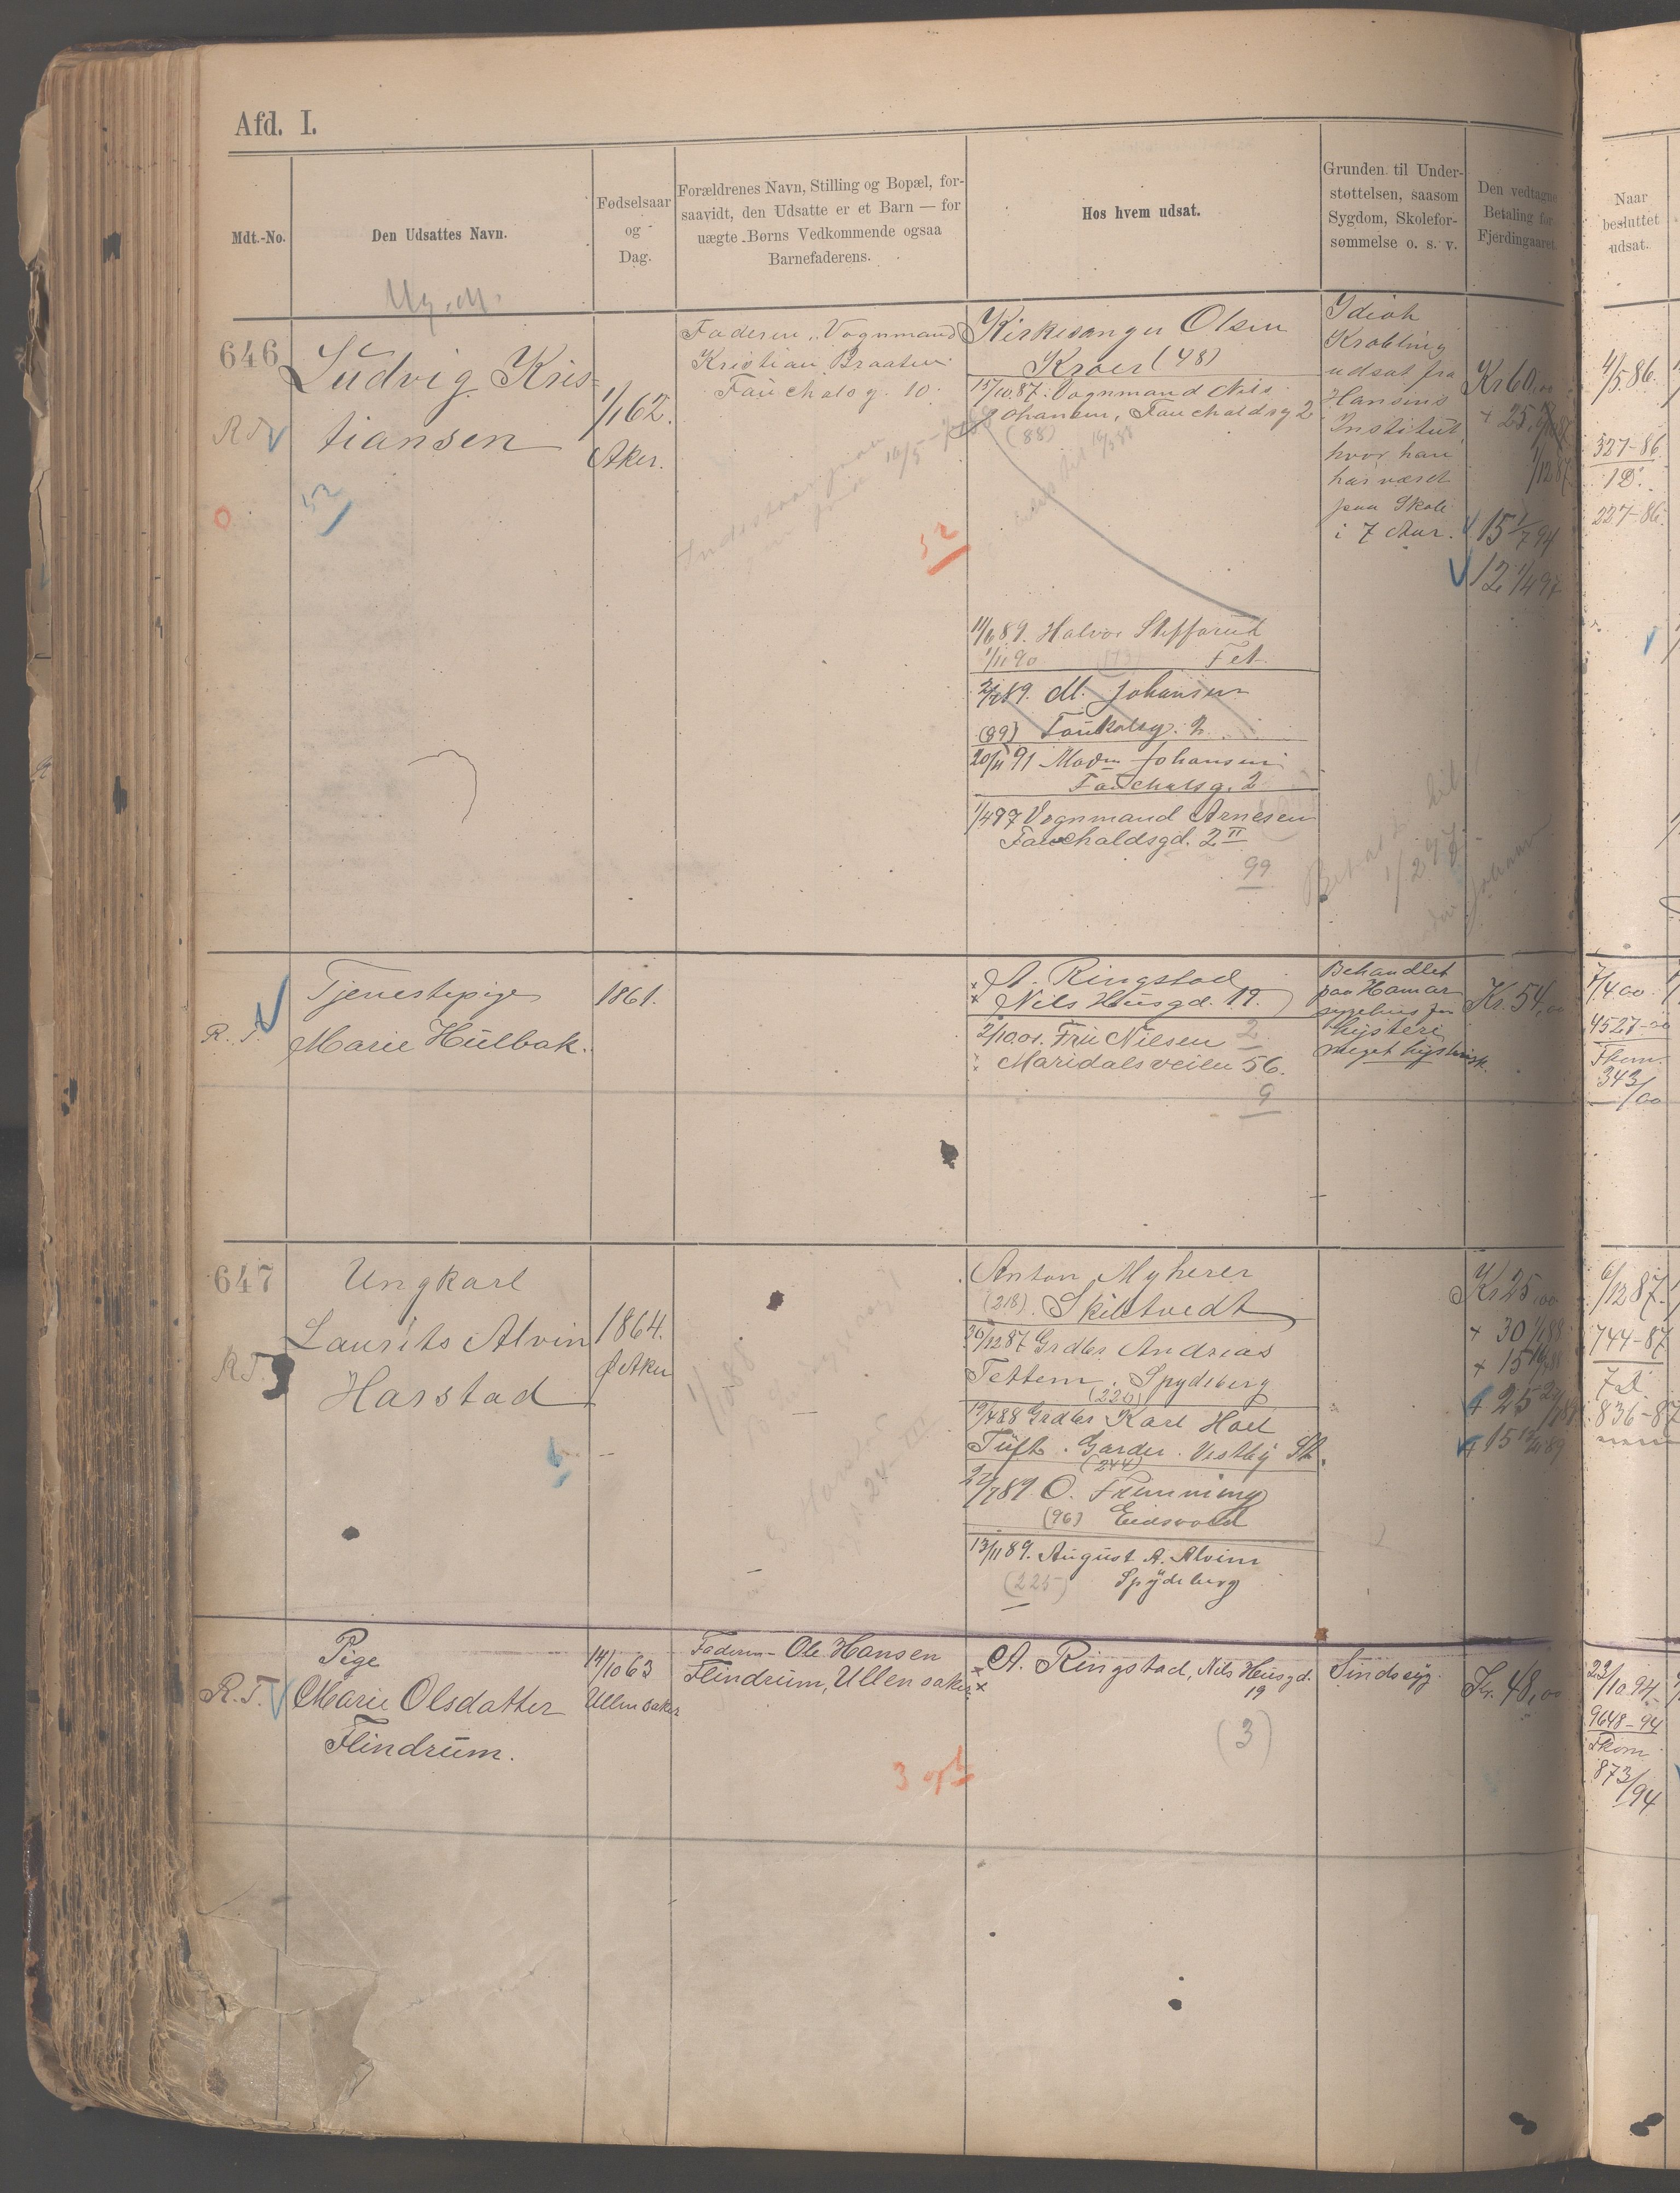 Afd. I.
Mdt.-No.
Den Udsattes Navn.
Fødselsaar
og
Dag.
Forældrenes Navn, Stilling og Bopæl, for-
saavidt, den Udsatte er et Barn — for
uægte Børns Vedkommende ogsaa
Barnefaderens.
Hos hvem udsat.
Grunden til Under-
støttelsen, saasom
Sygdom, Skolefor-
sømmelse o. s. v.
Den vedtagne
Betaling for
Fjerdingaaret
Naar
besluttet
udsat.
646
Ludvig Kris-
tiansen
52
1/1 62.
Aker.
Faderen: Vognmand
Kristian Braaten
Fauchalsg. 10.
52
Kirkesanger Olsen
Kroer (48)
15/10.87. Vognmand Nils
Johansen, Fauchaldsg 2
(88)
11/6 89. Halvor
1/11 90 Fet
2/7 89. M. Johansen
(99) Fauchalsg. 2.
20/11 91 Madm Johansen
Fauchalsg. 2
1/4 97 Vognmand Arnesen
Fauchaldsgd. 2 II
99
Idiot
Krøbling
udsat fra
Hansens
Institut,
hvor han
har været
paa Skole
i 7 Aar.
Kr 60,00
+ 25,
1/12 87
15 1/7 94
12 1/4 97
4/5 86.
327-86
1D.
227-86.
R. T.
Tjenestepige
Marie Hulbak.
1861.
A. Ringstad
Nils Husgd. 19.
2/10.01. Fru Nielsen
2
Maridalsveien 56.
9
Behandlet
paa Hamar
sygehus for
hysteri
meget hysterisk.
Kr. 54,00
7/4 00
4527-00
Fkom.
343/00
647
R.T.
Ungkarl
Laurits Alvin
Harstad
6
1864.
Aker
1/10 88
Anton Myherer
(218). Skibtvedt
30/12 87 Grdbr. Andreas
Tettem. Spydeberg
(220)
19/4 88 Grdbr Karl Hoel
Tuft. Garder. Vestby St.
(244)
24/7 89 O. Flemming
(96) Eidsvold
13/11 89. August A. Alvim
(225) Spydeberg
Kr 25,00
+ 30 1/1 88
+ 15
+ 25
+ 15
6/12 87.
744-87
7D.
836-87
R.T.
Pige
Marie Olsdatter
Flindrum.
14/10 63
Ullensaker
Faderen- Ole Hansen
Flindrum, Ullensaker.
3
A. Ringstad, Nils Husgd.
19
(3)
Sindssyg.
Kr. 48,00
23/10.94.
9648-94
Fkom
873/94